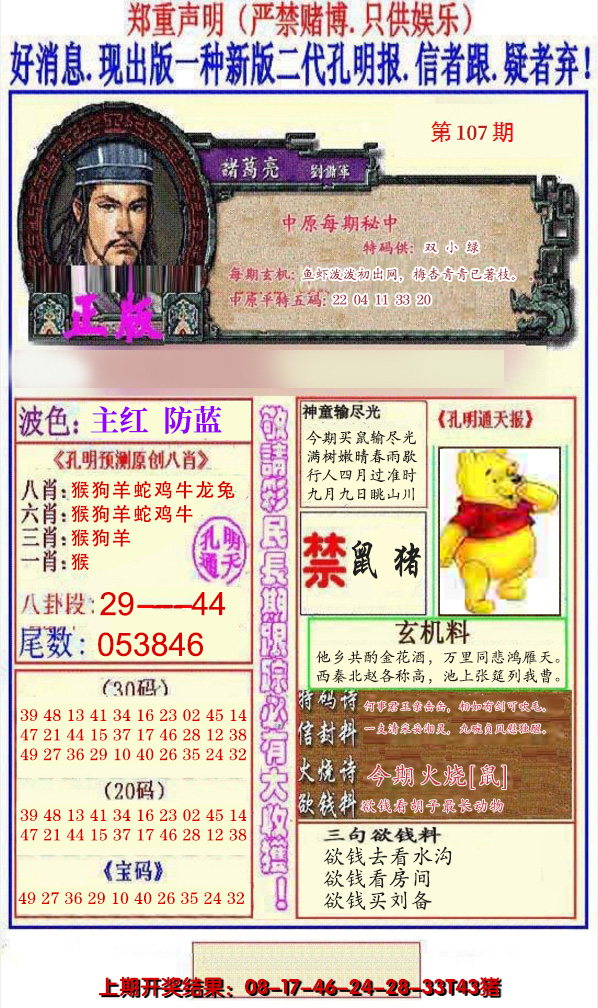 郑重声明（严禁赌博.只供娱乐）
好消息.现出版一种新版二代孔明报.信者跟.疑者弃！
第107期
諸葛亮 劉備軍
中原每期秘中
特码供：双 小 绿
每期玄机：鱼虾泼泼初出网，梅杏青青已著枝。
中原平特五码：22 04 11 33 20
正版
波色：主红 防蓝
《孔明预测原创八肖》
八肖：猴狗羊蛇鸡牛龙兔
六肖：猴狗羊蛇鸡牛
三肖：猴狗羊
一肖：猴
孔明
通天
八卦段：29——44
尾数：053846
（30码）
39 48 13 41 34 16 23 02 45 14
47 21 44 15 37 17 46 28 12 38
49 27 36 29 10 40 26 35 24 32
（20码）
39 48 13 41 34 16 23 02 45 14
47 21 44 15 37 17 46 28 12 38
《宝码》
49 27 36 29 10 40 26 35 24 32
敬請彩民長期跟踪必有大收獲！
神童输尽光
今期买鼠输尽光
满树嫩晴春雨歇
行人四月过准时
九月九日眺山川
《孔明通天报》
禁 鼠 猪
玄机料
他乡共酌金花酒，万里同悲鸿雁天。
西秦北赵各称高，池上张筵列我曹。
特码诗 何事君王亲击击，相如有剑可吹毛。
信封料 一支清采妥湘灵，九畹贞风慰独醒。
火烧诗 今期火烧[鼠]
欲钱料 欲钱看胡子最长动物
三句欲钱料
欲钱去看水沟
欲钱看房间
欲钱买刘备
上期开奖结果：08-17-46-24-28-33T43猪